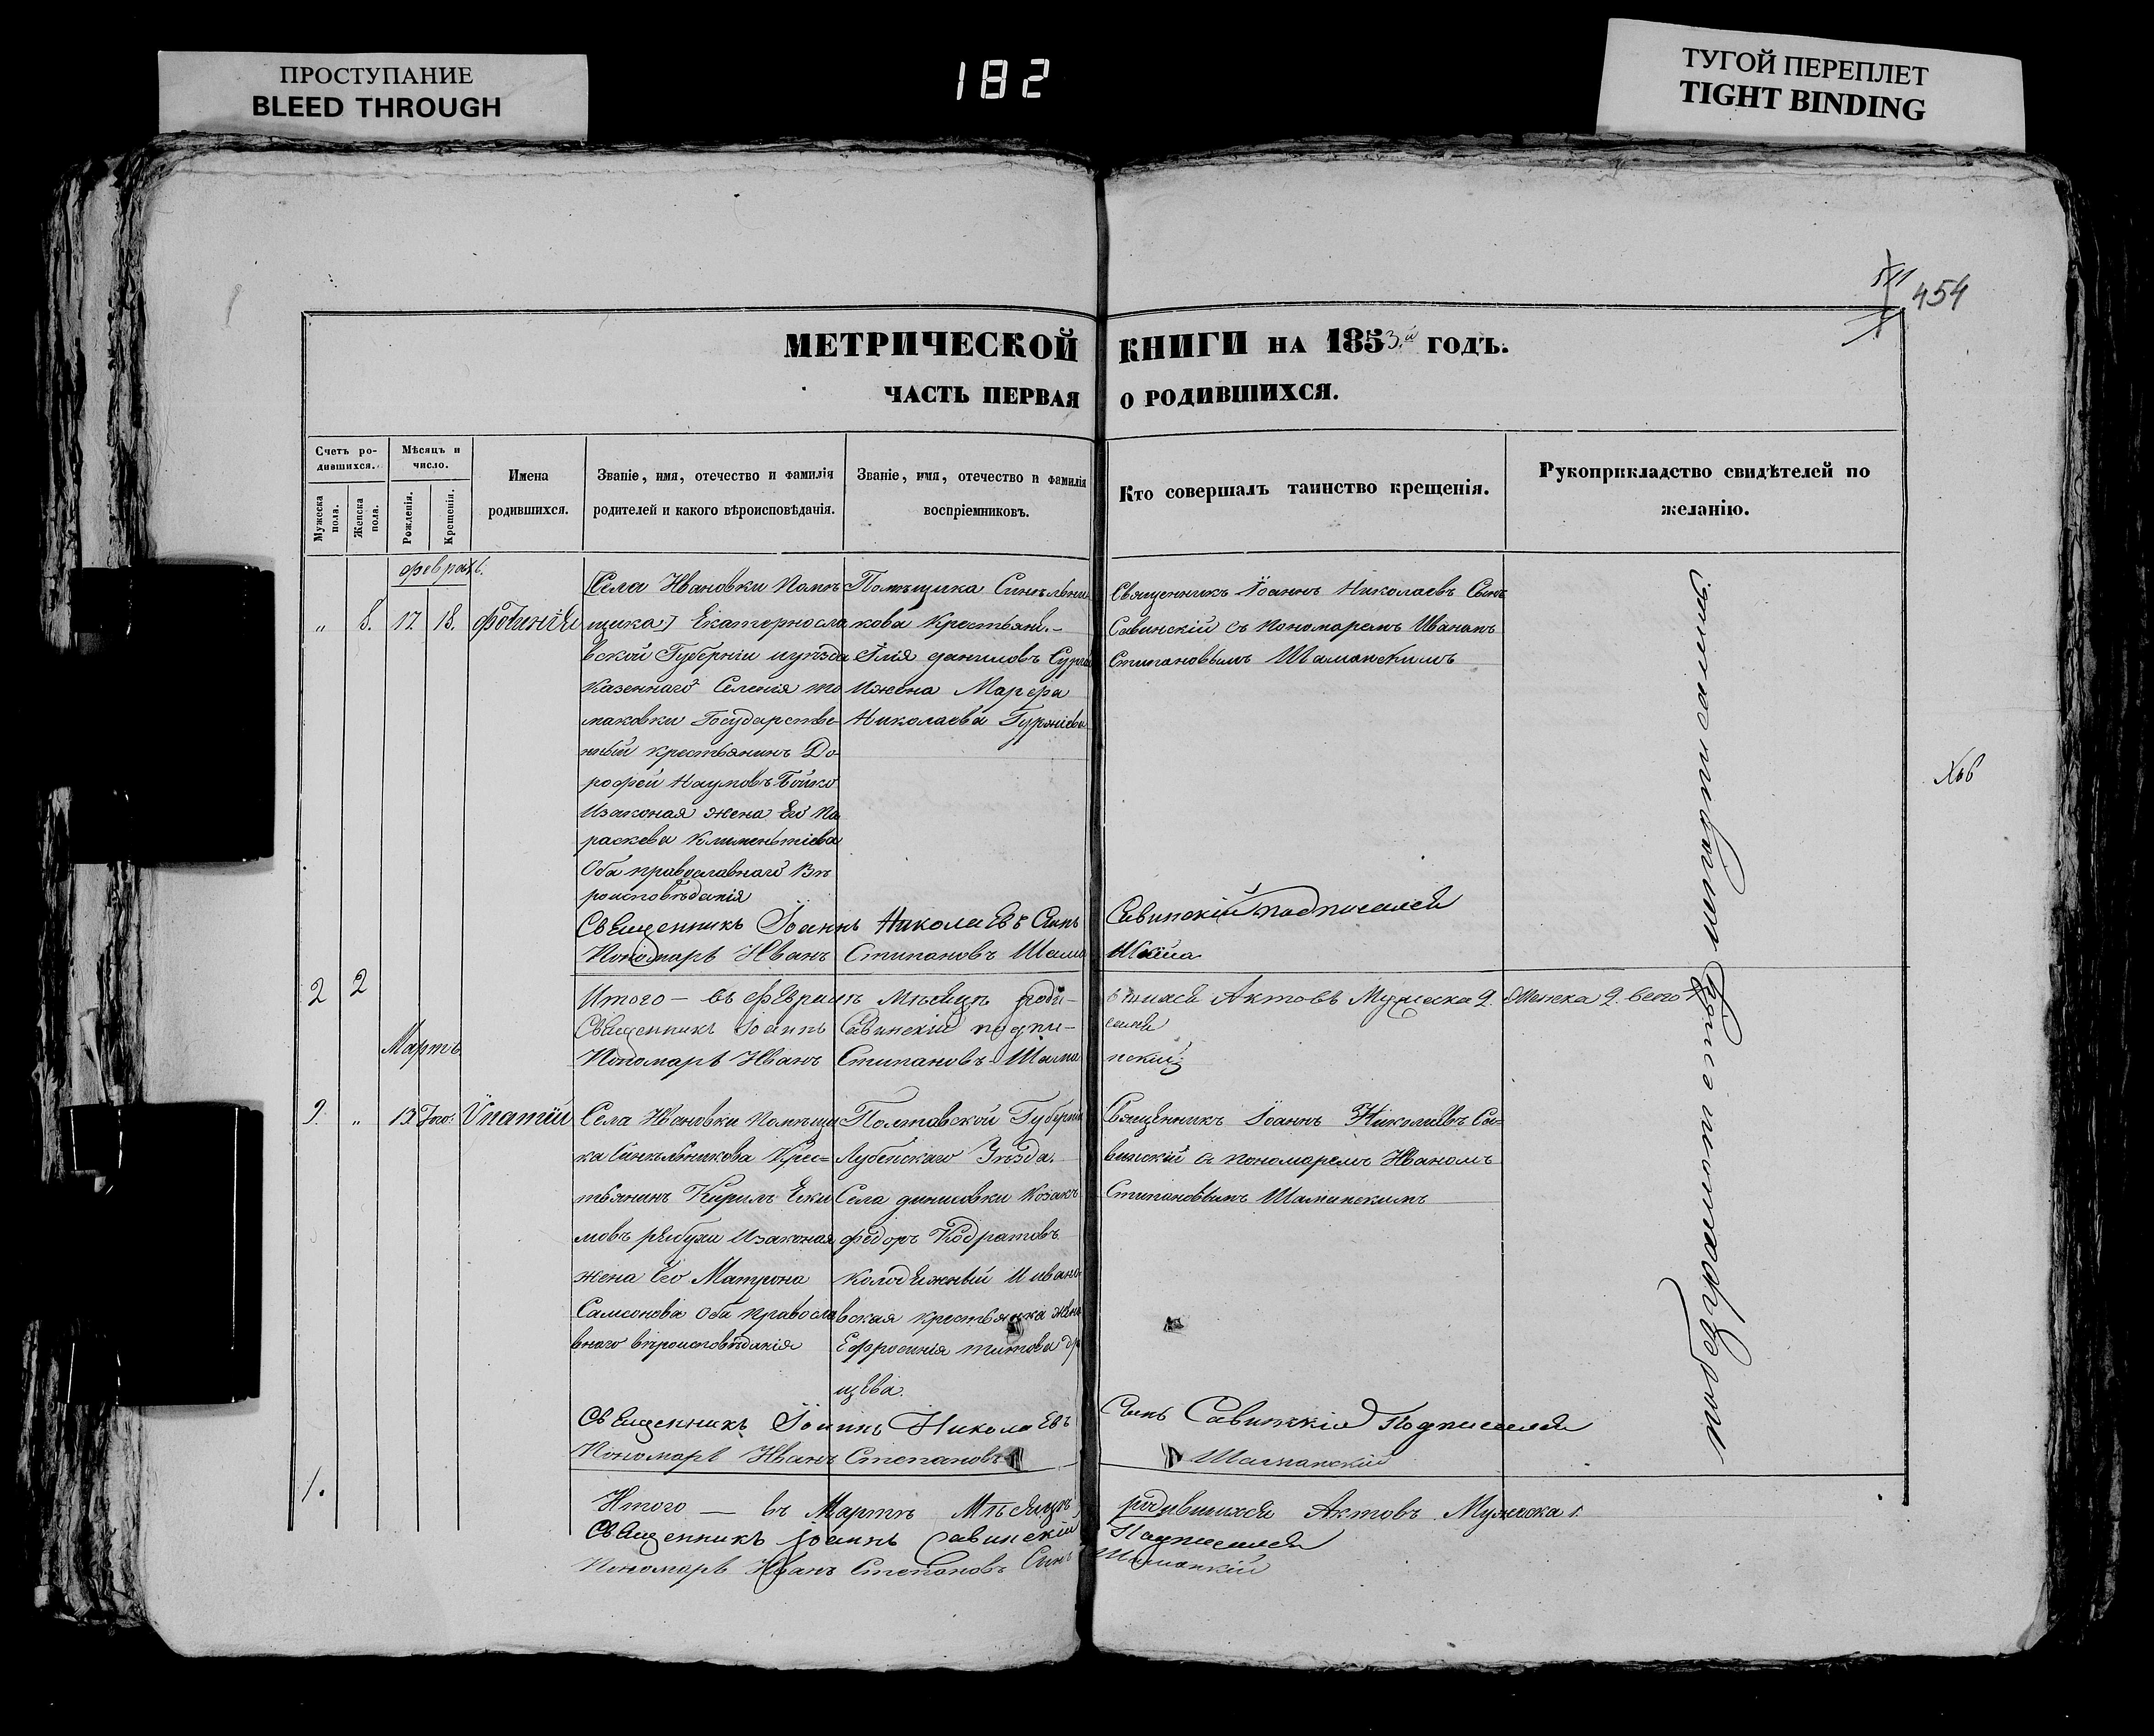 ПРОСТУПАНИЕ
BLEED THROUGH
182
ТУГОЙ ПЕРЕПЛЕТ
TIGHT BINDING
454
МЕТРИЧЕСКОЙ КНИГИ НА 1853й ГОДЪ.
ЧАСТЬ ПЕРВАЯ О РОДИВШИХСЯ.
Счетъ родившихся.
Мужеска пола.
Женска пола.
Мѣсяцъ и число.
Рожденія.
Крещенія.
Имена родившихся.
Званіе, имя, отечество и фамилія родителей и какого вѣроисповѣданія.
Званіе, имя, отечество и фамилія воспріемниковъ.
Кто совершалъ таинство крещенія.
Рукоприкладство свидѣтелей по желанію.
февраль.
„ 8. 17. 18. Фотинія
Села Ивановки Помѣ
щика] Екатеринсла
вской Губерніи иуѣзда
Казеннаго Селенія
маковки Государстве-
нный крестьянинъ До-
рофей Наумовъ Бойко
Изаконая жена Его Па
раскева Климентіева
Оба православнаго Вѣ
роисповѣданія
Помѣщика Синельни
кова Крестьяне.
Илія даниловъ
Ижена Марфа
Николаева
Священникъ Іоаннъ Николаевъ Сынъ
Савинскій съ пономаремъ Иваномъ
Стипановымъ Шаманскимъ
Священникъ Іоаннъ Николаевъ Сынъ Савинскій подписался
Пономарь Иванъ Стипановъ
2 2
Итого — въ февралѣ Мѣсяцѣ роди-вшихся Актовъ Мужеска 2. Женска 2. всего 4
Священникъ Іоаннъ Савинскій подпи-сался
Пономарь Иванъ Стипановъ Шама нский
Мартъ
9. „ 13. Ѵпатій
Села Ивановки помѣщи
ка Синельникова Крес=
тьянинъ Кирилъ Еки
мовъ рябуха Изаконая
жена Его Матрона
Самсонова Оба Правосла
внаго вѣроисповѣданія
Полтавской Губерніи
Лубенскаго Уѣзда.
Села Козакъ
федоръ Кодратовъ
колодяжный И ивано
вская крестьянка жена
Ефросинія титова
Священникъ Іоаннъ Николаевъ Са=
винскій съ пономаремъ Иваномъ
Стипановымъ Шаманскимъ
Священникъ Іоаннъ Николаевъ Сынъ Савинскій Подписался
Пономарь Иванъ Степановъ Шаманскій
1.
Итого — въ Мартѣ Мѣсяцѣ родившихся Актовъ Мужеска 1.
Священникъ Іоаннъ Савинскій Подписался
Пономарь Иванъ Степановъ Сынъ Шаманскій